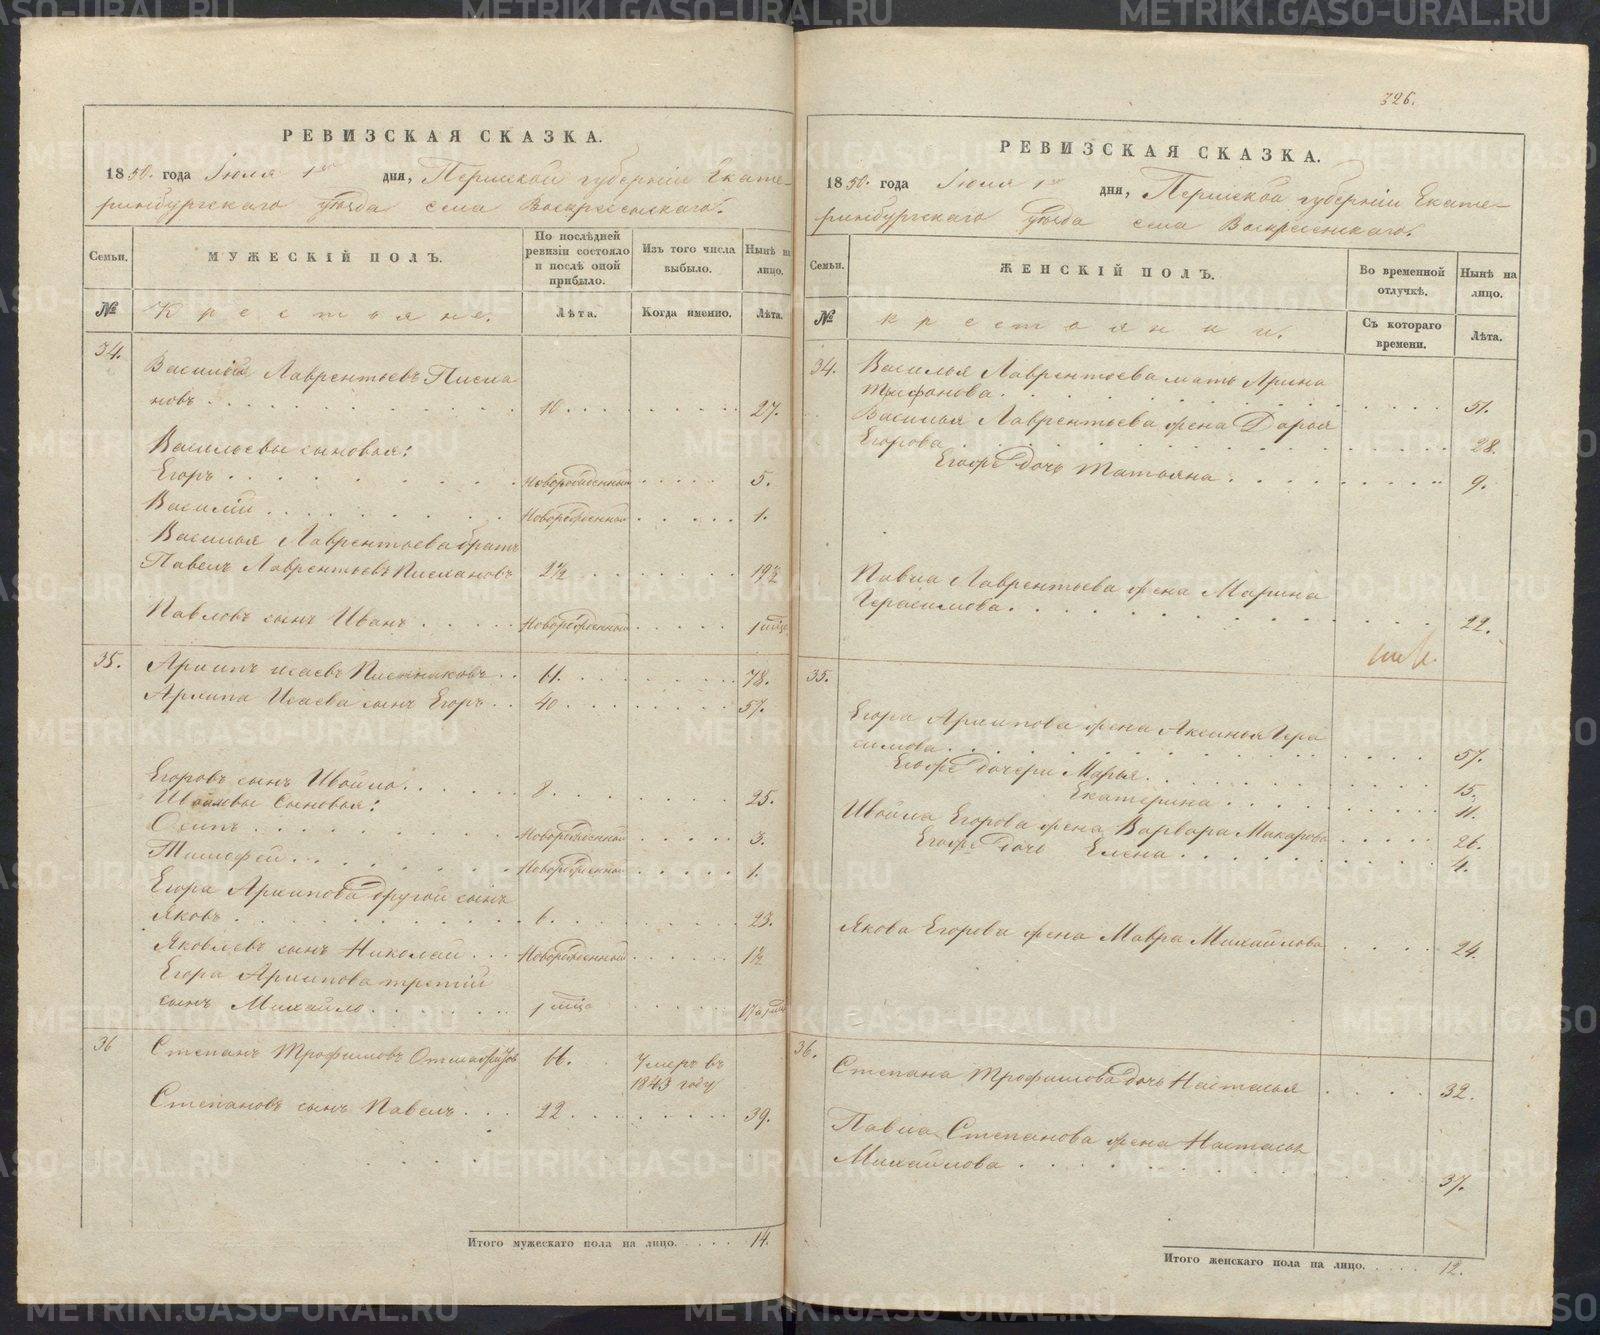 РЕВИЗСКАЯ СКАЗКА.
1850. года Іюля 1го дня, Пермской губерніи Екате-
ринбургскаго уѣзда села Воскресенскаго.
Семьи.
МУЖЕСКІЙ ПОЛЪ.
По послѣдней
ревизіи состояло
и послѣ оной
прибыло.
Изъ того числа
выбыло.
Нынѣ на
лицо.
№
Крестьяне.
Лѣта.
Когда именно.
Лѣта.
34.
Василій Лаврентьевъ Писма
новъ 10. 27.
Васильевы сыновья:
Егоръ Новорожденный 5.
Василій Новорожденный 1.
Василья Лаврентьева братъ
Павелъ Лаврентьевъ Писмановъ 2½ 19½
Павловъ сынъ Иванъ Новорожденный 1 мѣс.
35. Архипъ Исаевъ 61. 78.
Архипа Исаева сынъ Егоръ 40. 57.
Егоровъ сынъ Ивойло 8. 25.
Ивойловы сыновья:
Осипъ Новорожденный 3.
Тимофей Новорожденный 1.
Егора Архипова другой сынъ
Яковъ 6. 23.
Яковлевъ сынъ Николай Новорожденный 1½
Егора Архипова третій
сынъ Михайло 1 мѣс.
36 Степанъ Трофимовъ 66. Умеръ въ
1843 году
Степановъ сынъ Павелъ 22. 39.
Итого мужескаго пола на лицо. 14.
326.
РЕВИЗСКАЯ СКАЗКА.
1850. года Іюля 1го дня, Пермской губерніи Екате-
ринбургскаго уѣзда села Воскресенскаго.
Семьи.
ЖЕНСКІЙ ПОЛЪ.
Во временной
отлучкѣ.
Нынѣ на
лицо.
№
Крестьянки.
Съ котораго
времени.
Лѣта.
34. Василья Лаврентьева мать Арина
Трифонова 51.
Василья Лаврентьева жена Дарья
Егорова 28.
Егожъ дочь Татьяна 9.
Павла Лаврентьева жена Марина
Герасимова 22.
35.
Егора Архипова жена Аксинья Гера
симова 57.
Егожъ дочери Марья 15.
Екатерина 11.
Ивойла Егорова жена Варвара Макарова 26.
Егожъ дочь Елена 4.
Якова Егорова жена Мавра Михайлова 24.
36.
Степана Трофимова дочь Настасья 32.
Павла Степанова жена Настасья
Михайлова 37.
Итого женскаго пола на лицо. 12.
METRIKI.GASO-URAL.RU